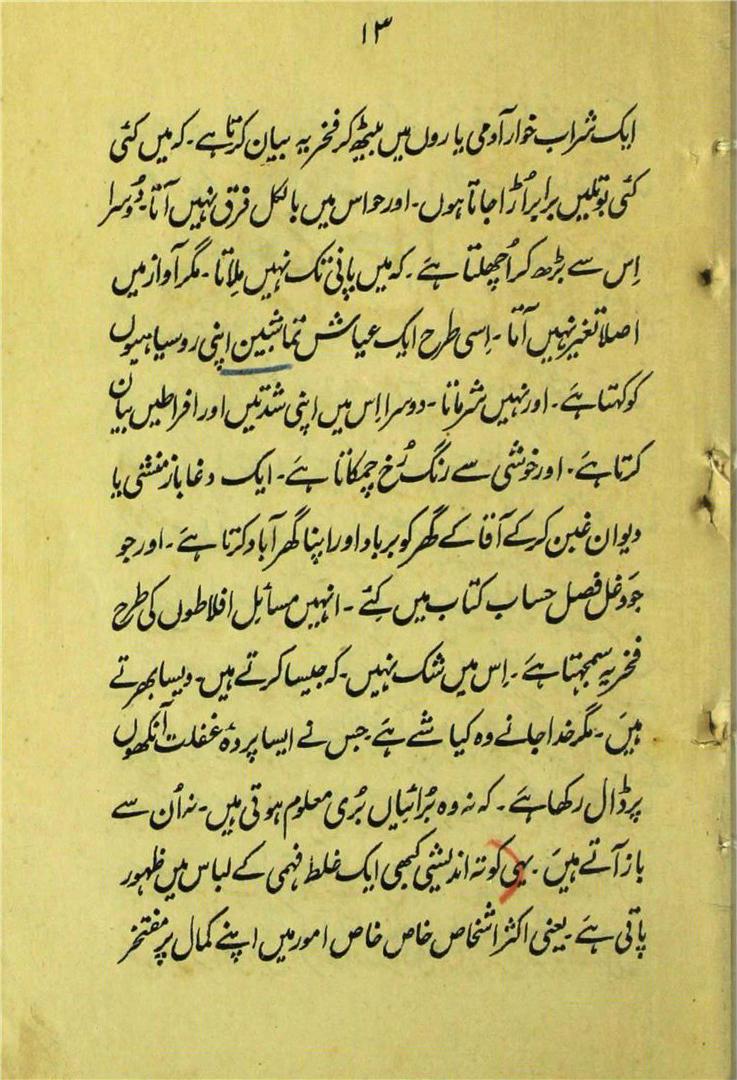 ۱۳
ایک شراب خوار آدمی یاروں میں بیٹھ کر فخریہ بیان کرتا ہے۔ کہ میں کئی
کئی بوتلیں برابر اُڑا جاتا ہوں۔ اور حواس میں بالکل فرق نہیں آتا۔ دُوسرا
اِس سے بڑھ کر اُچھلتا ہے۔ کہ میں پانی تک نہیں مِلاتا۔ مگر آواز میں
اصلا تغیر نہیں آتا۔ اِسی طرح ایک عیاش تماشبین اپنی روسیاہیوں
کو کہتا ہے۔ اور نہیں شرماتا۔ دوسرا اِس میں اپنی شدتیں اور افراطیں بیان
کرتا ہے۔ اور خوشی سے رنگ رُخ چمکاتا ہے۔ ایک دغاباز منشی یا
دیوان غبن کر کے آقا کے گھر کو برباد اور اپنا گھر آباد کرتا ہے۔ اور جو
جو دغل فصل حساب کتاب میں کئے۔ انہیں مسائل افلاطوں کی طرح
فخریہ سمجہتا ہے۔ اِس میں شک نہیں۔ کہ جیسا کرتے ہیں۔ ویسا بھرتے
ہیں۔ مگر خدا جانے وہ کیا شے ہے جس نے ایسا پردۂ غفلت آنکھوں
پر ڈال رکھا ہے۔ کہ نہ وہ بُرائیاں بُری معلوم ہوتی ہیں۔ نہ اُن سے
باز آتے ہیں۔ یہی کوتہ اندیشی کبھی ایک غلط فہمی کے لباس میں ظہور
پاتی ہے۔ یعنی اکثر اشخاص خاص خاص امور میں اپنے کمال پر مفتخر